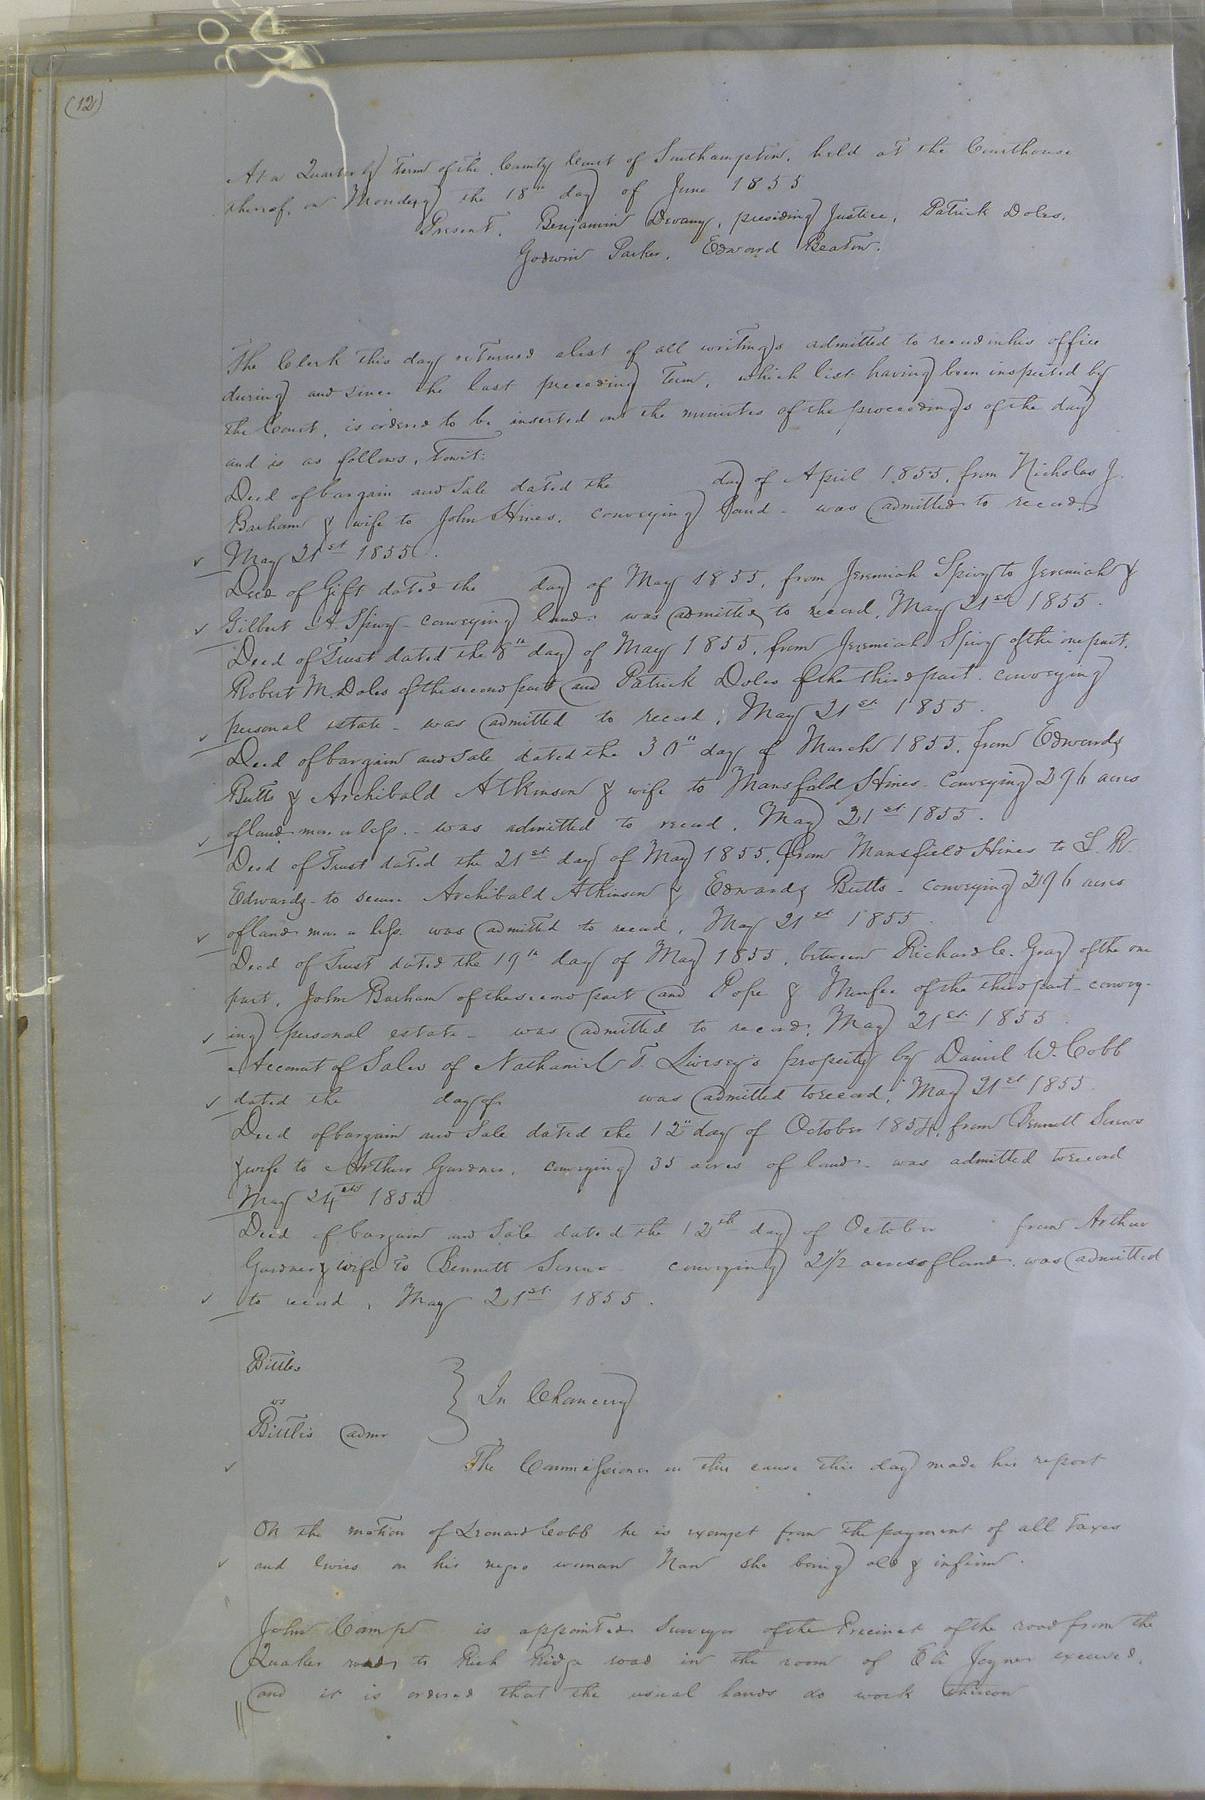 (12)
At a Quarterly Term of the County Court of Southampton, held at the Courthouse
thereof, on Monday the 18th day of June 1855
Present, Benjamin Devany, presiding Justice, Patrick Doles,
Godwin Parker, Edward Beaton.
The Clerk this day returned a list of all writings admitted to record in his office
during and since the last preceding Term, which list having been inspected by
the Court, is ordered to be inserted in the minutes of the proceedings of the day
and is as follows, Towit:
Deed of bargain and Sale dated the day of April 1855, from Nicholas J.
Barham & wife to John Hines, conveying land - was admitted to record,
May 21st 1855.
Deed of Gift dated the day of May 1855, from Jeremiah Spivy to Jeremiah &
Gilbert A. Spivy - conveying land - was admitted to record, May 21st 1855.
Deed of Trust dated the 8th day of May 1855, from Jeremiah Spivy of the one part,
Robert M. Doles of the second part and Patrick Doles of the third part - conveying
personal estate - was admitted to record, May 21st 1855.
Deed of bargain and Sale dated the 30" day of March 1855, from Edwards
Butts & Archibald Atkinson & wife to Mansfield Hines - Conveying 296 acres
of land more or less - was admitted to record, May 21st 1855.
Deed of Trust dated the 21st day of May 1855, from Mansfield Hines to L. R.
Edwards - to secure Archibald Atkinson & Edwards Butts - conveying 296 acres
of land more or less. was admitted to record, May 21st 1855.
Deed of Trust dated the 19th day of May 1855, between Richard C. Gray of the one
part, John Barham of the second part and Pope & of the third part - convey-
ing personal estate - was admitted to record, May 21st 1855.
Account of Sales of Nathaniel T. Livesey's property by Daniel W. Cobb
dated the day of was admitted to record, May 21st 1855.
Deed of bargain and Sale dated the 12" day of October 1854, from Bennett
& wife to Arthur Gardner, conveying 35 acres of land - was admitted to record
May 24 1855
Deed of bargain and Sale dated the 12th day of October from Arthur
Gardner & wife to Bennett conveying 2 1/2 acres of land was admitted
to record, May 21st 1855.
Bittles
vs
Bittle's admr } In Chancery
The Commissioner in this cause this day made his report
On the motion of Leonard Cobb he is exempt from the payment of all Taxes
and levies on his negro woman Nan she being old & infirm.
John Camp is appointed Surveyor of the Precinct of the road from the
Quaker road to Rich Ridge road in the room of Eli Joyner excused,
and it is ordered that the usual hands do work thereon